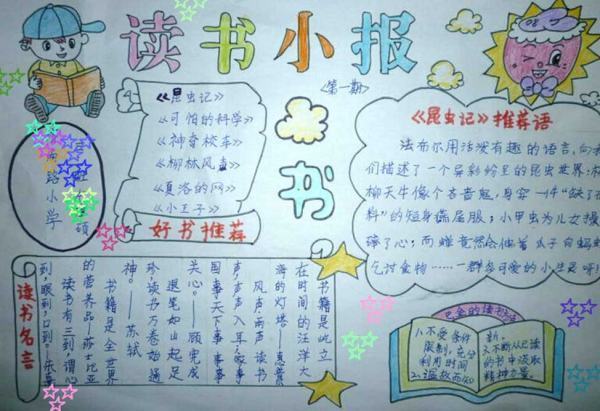 读书小报
<第一期>
《昆虫记》
《可怕的科学》
《神奇校车》
《柳林风声》
《夏洛的网》
《小王子》
好书推荐
路小学
书
《昆虫记》推荐语
法布尔用活泼有趣的语言,向我
们描述了一个异彩纷呈的昆虫世界:
柳天牛像个吝啬鬼,身穿一件“缺了
料”的短身燕尾服;小甲虫为儿女操
碎了心;而蝉竟然会伸着爪子向蚂蚁
乞讨食物……一群多可爱的小生灵呀!
读书名言
书籍是屹立
在时间的汪洋大
海的灯塔—惠普
风声雨声读书
声声声入耳家事
国事天下事事事
关心。—顾宪成
退笔如山起足
珍,读书万卷始通
神。—苏轼
书籍是全世界
的营养品—莎士比亚
读书有三到,谓心
到,眼到,口到—朱熹
巴金的读书方法
1.不受条件
限制,充分
利用时间
2.温故而知
新.
3.不断从已读
的书中汲取
精神力量.